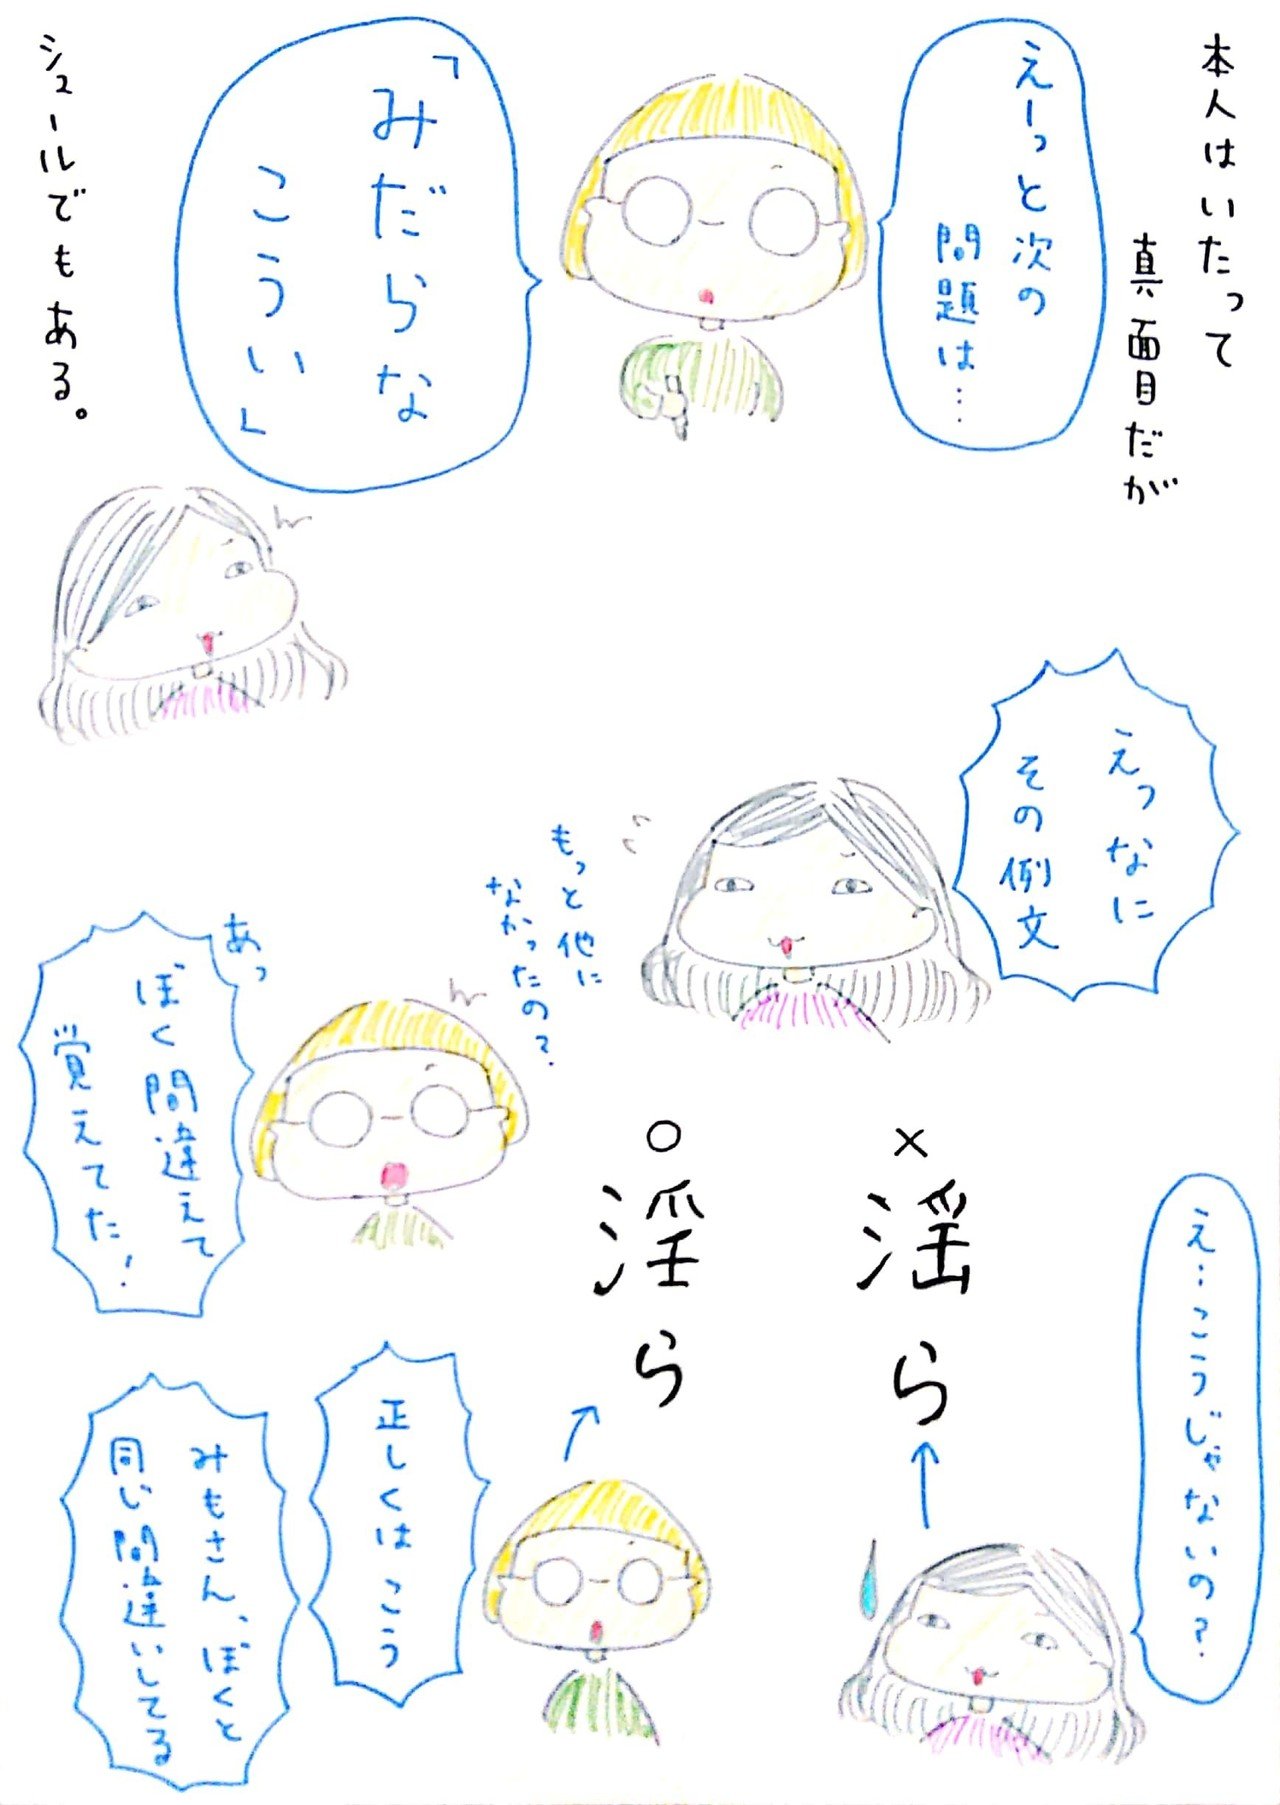 本人はいたって
真面目だが
えーっと次の
問題は…
「みだらな
こうい」
シュールでもある。
えっなに
その例文
もっと他に
なかったの?
あっ
ぼく間違えて
覚えてた!
え…こうじゃないの?
×
淫ら
○
淫ら
正しくはこう
みもさん、ぼくと
同じ間違いしてる